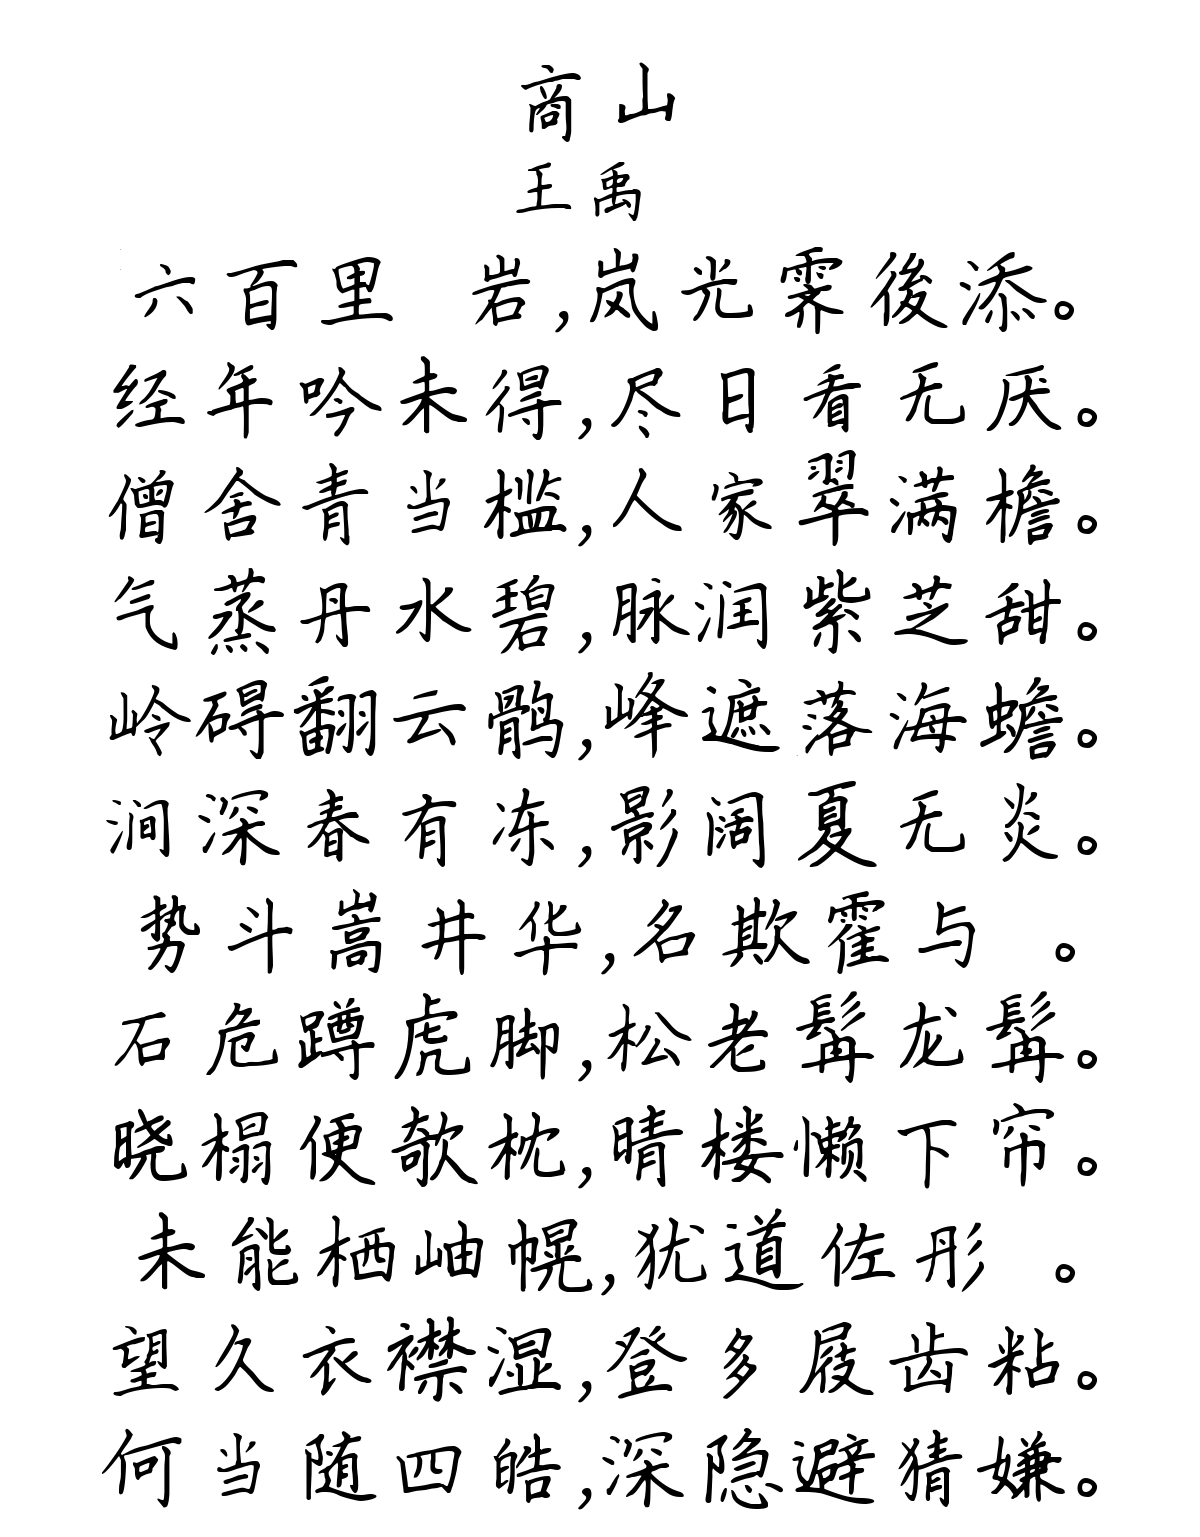 商山
王禹
六百里 岩,岚光霁後添。
经年吟未得,尽日看无厌。
僧舍青当槛,人家翠满檐。
气蒸丹水碧,脉润紫芝甜。
岭碍翻云鹘,峰遮落海蟾。
涧深春有冻,影阔夏无炎。
势斗嵩井华,名欺霍与 。
石危蹲虎脚,松老髯龙髯。
晓榻便欹枕,晴楼懒下帘。
未能栖岫幌,犹道佐彤 。
望久衣襟湿,登多屐齿粘。
何当随四皓,深隐避猜嫌。